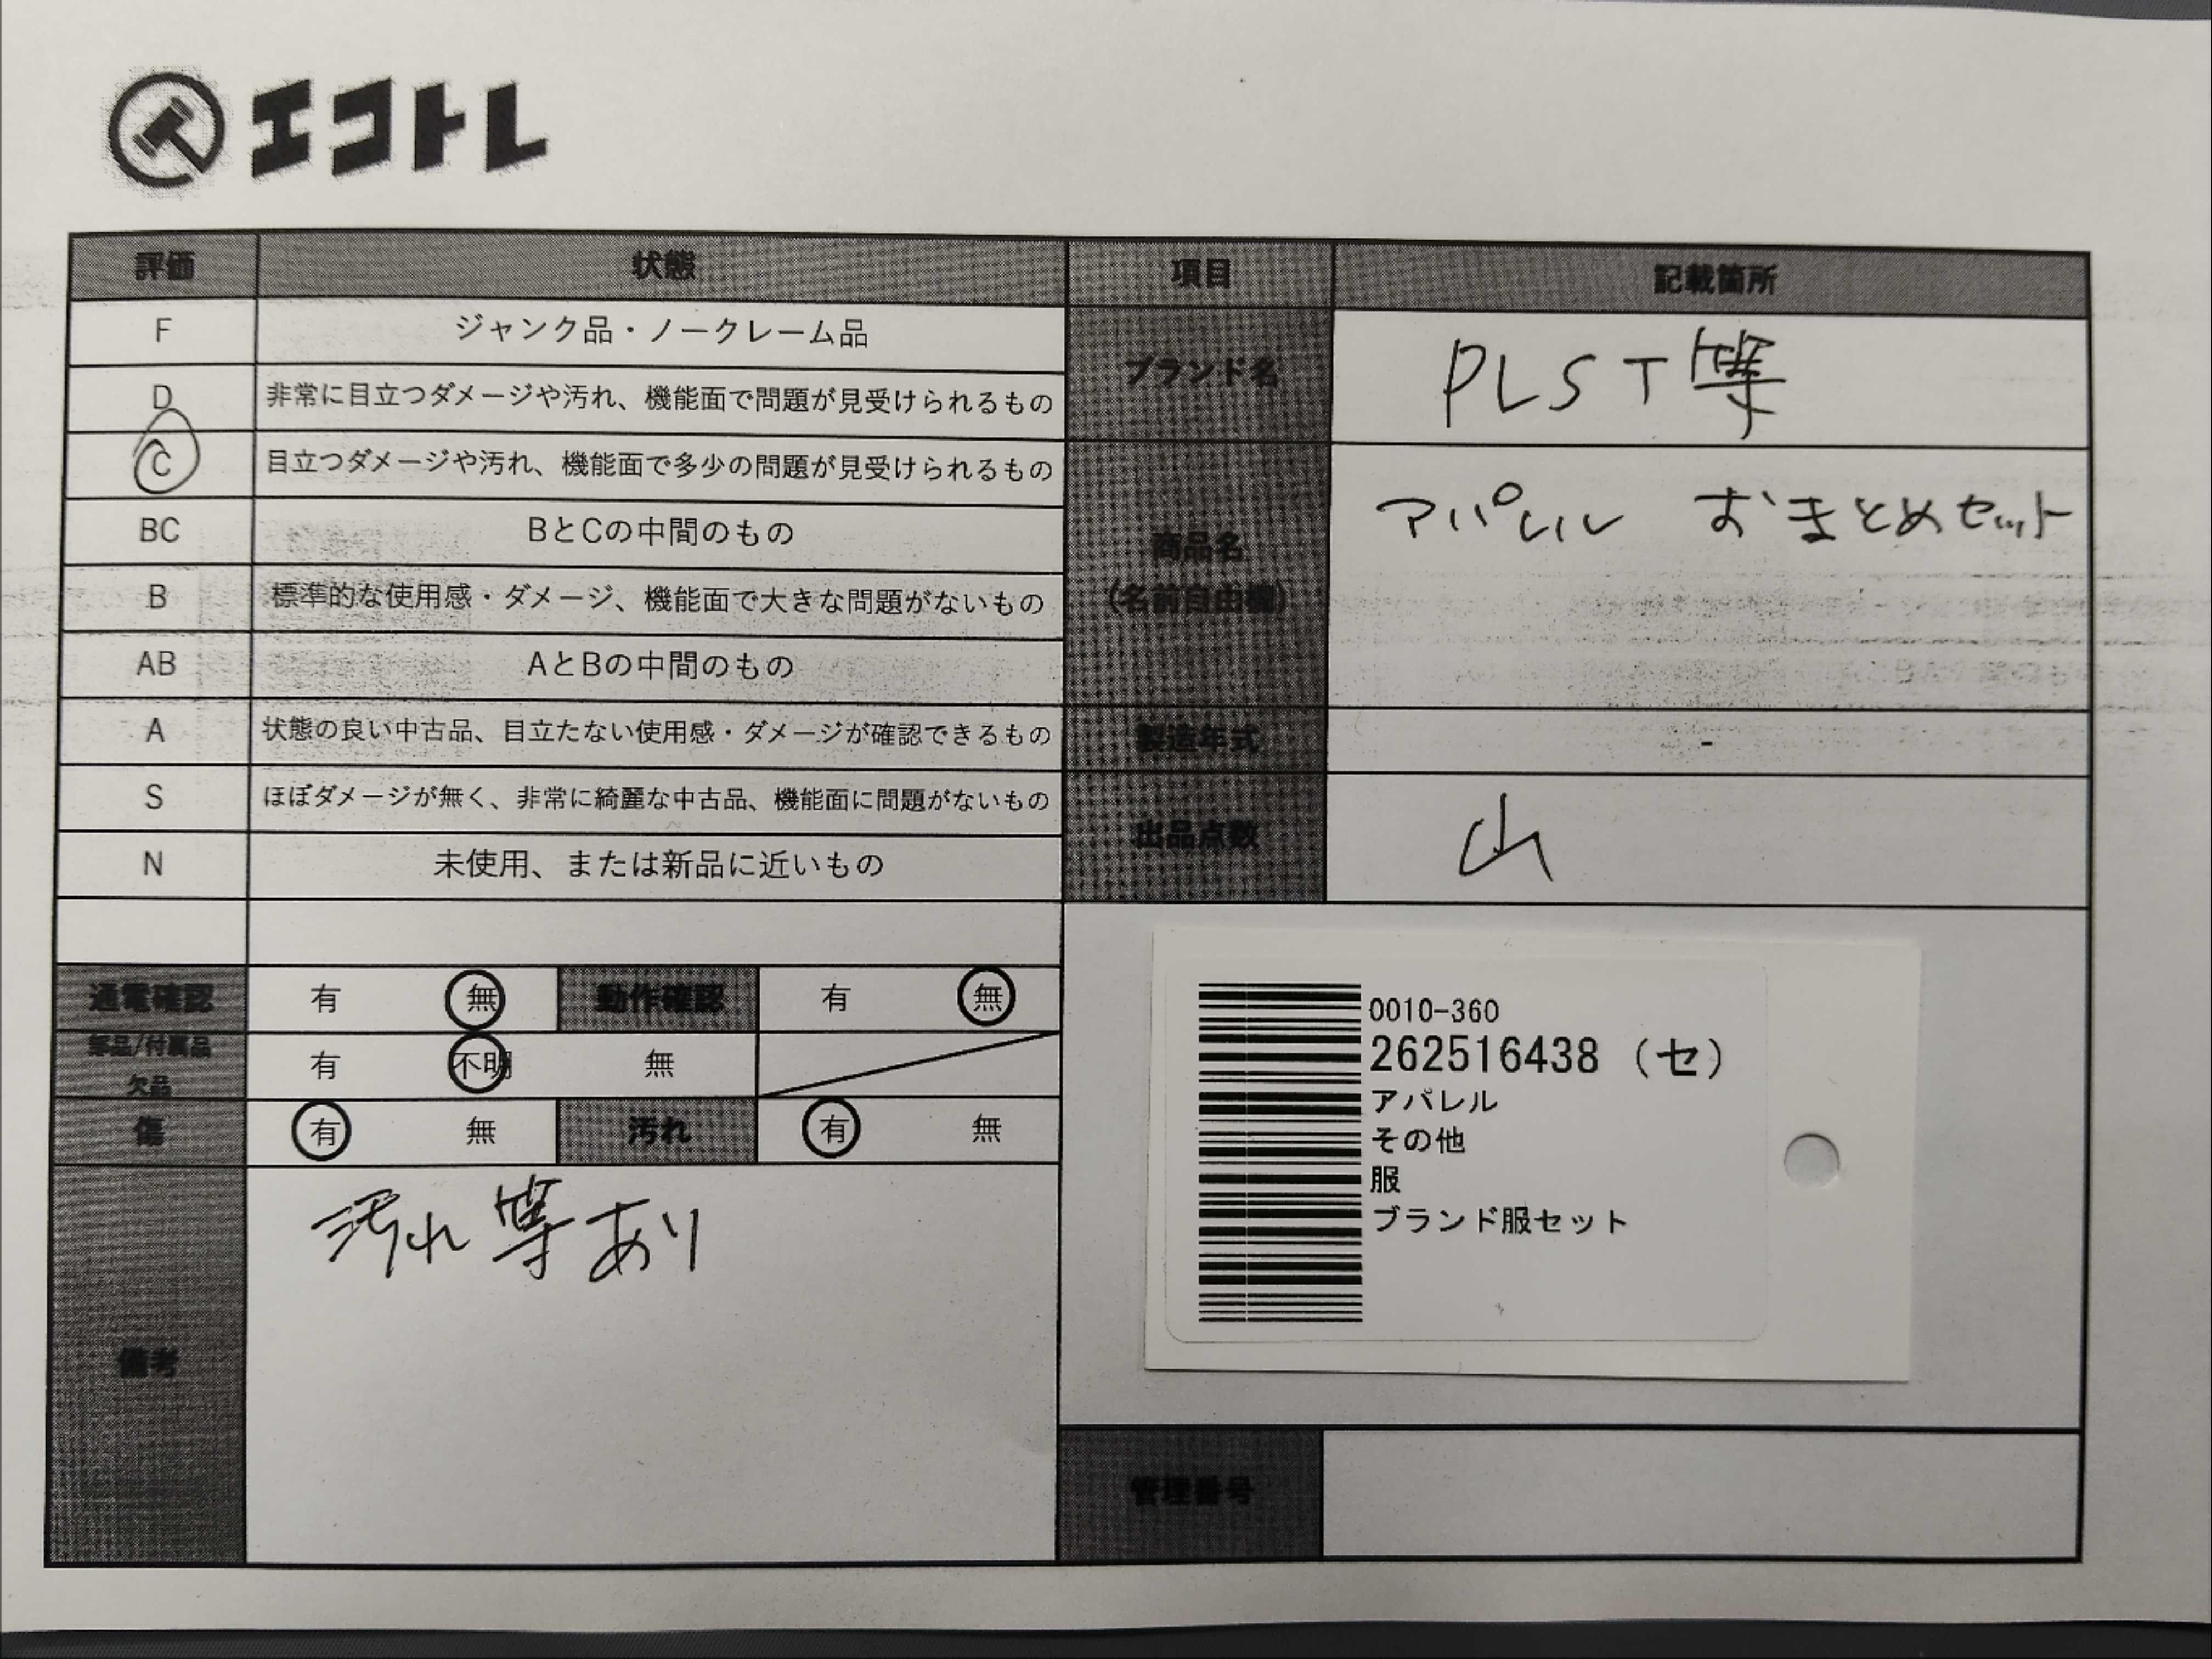 エコトレ
評価 状態
F ジャンク品・ノークレーム品
D 非常に目立つダメージや汚れ、機能面で問題が見受けられるもの
C 目立つダメージや汚れ、機能面で多少の問題が見受けられるもの
BC BとCの中間のもの
B 標準的な使用感・ダメージ、機能面で大きな問題がないもの
AB AとBの中間のもの
A 状態の良い中古品、目立たない使用感・ダメージが確認できるもの
S ほぼダメージが無く、非常に綺麗な中古品、機能面に問題がないもの
N 未使用、または新品に近いもの
通電確認 有 無 動作確認 有 無
部品/付属品
欠品 有 不明 無
傷 有 無 汚れ 有 無
備考 汚れ等あり
項目 記載箇所
ブランド名 PLST等
商品名
(名前自由欄) アパレル おまとめセット
製造年式 -
出品点数 山
0010-360
262516438 (セ)
アパレル
その他
服
ブランド服セット
管理番号